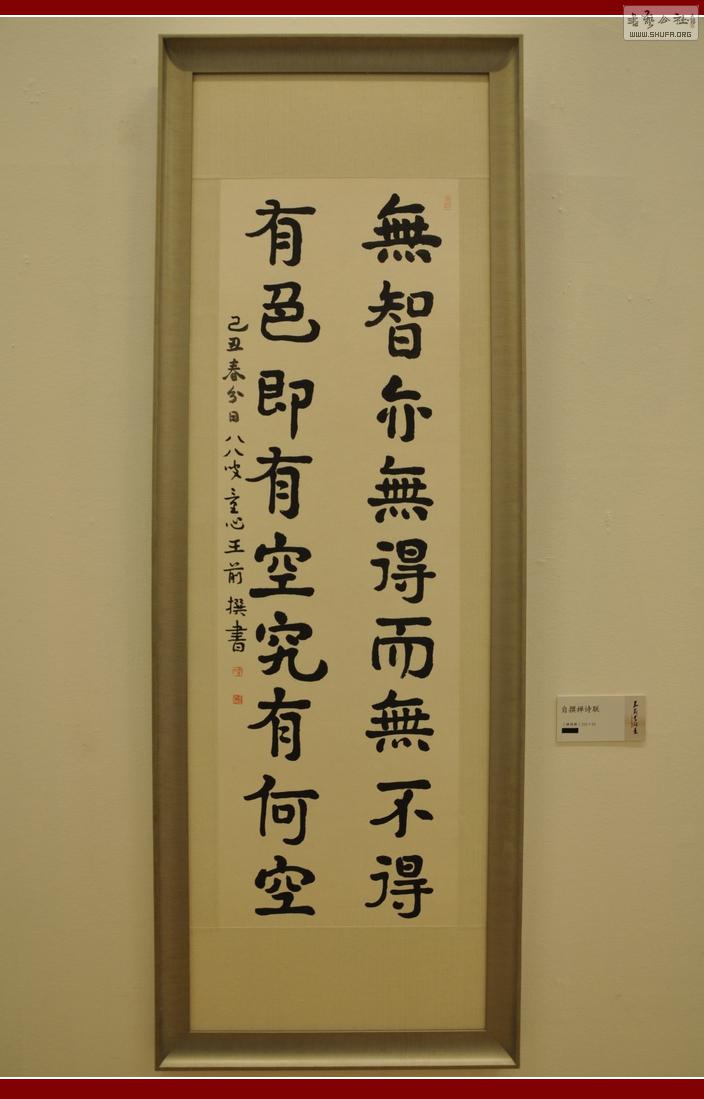 無智亦無得而無不得
有色即有空究有何空
己丑春分日八八叟童心王前撰書
自撰禅诗联
書藝公社
WWW.SHUFA.ORG